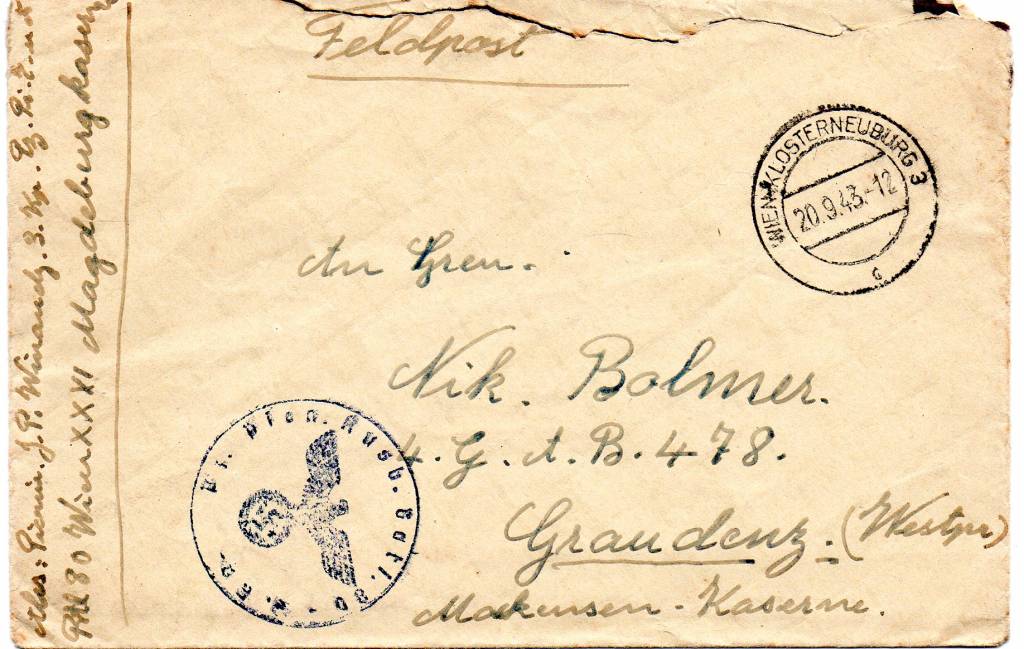 Feldpost
WIEN-KLOSTERNEUBURG 3
20.9.43.-12
c
An Gren.
Nik. Bolmer.
4. G. A. B. 478.
Graudenz. (Westpr)
Mackensen-Kaserne.
Pion. Ausb. Batl. 80
Abs: Pionier. J. P. 3. Kp.
80 Wien XXI Magdeburgkaserne